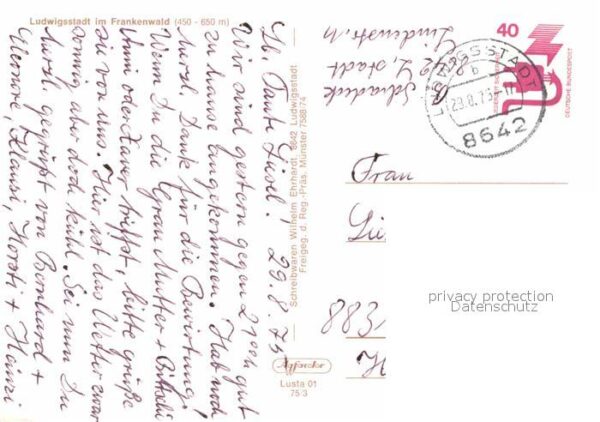 Ludwigsstadt im Frankenwald (450 - 650 m)
29.8.75
Lb. Tante Liesel!
Wir sind gestern gegen 21 oo gut
zu Hause angekommen. Hab noch
herzl. Dank für die Bewirtung,
Wenn Du die Frau Mutter +
Anni oder trifft, bitte grüße
sie von uns. Hier ist das Wetter zwar
sonnig aber doch kühl. Sei nun Du
herzl. gegrüßt von Bernhard +
Werner, Klausi, Horsti + Heinzi
Schreibwaren Wilhelm Ehrhardt, 8642 Ludwigsstadt
Freigeg. d. Reg.-Präs. Münster 7588/74
Agfacolor
Lusta 01
75/3
8642 L.stadt
Lindenstr.
40
DEUTSCHE BUNDESPOST
LUDWIGSSTADT
b
29.8.75-17
8642
Frau
Lie
883
H
privacy protection
Datenschutz